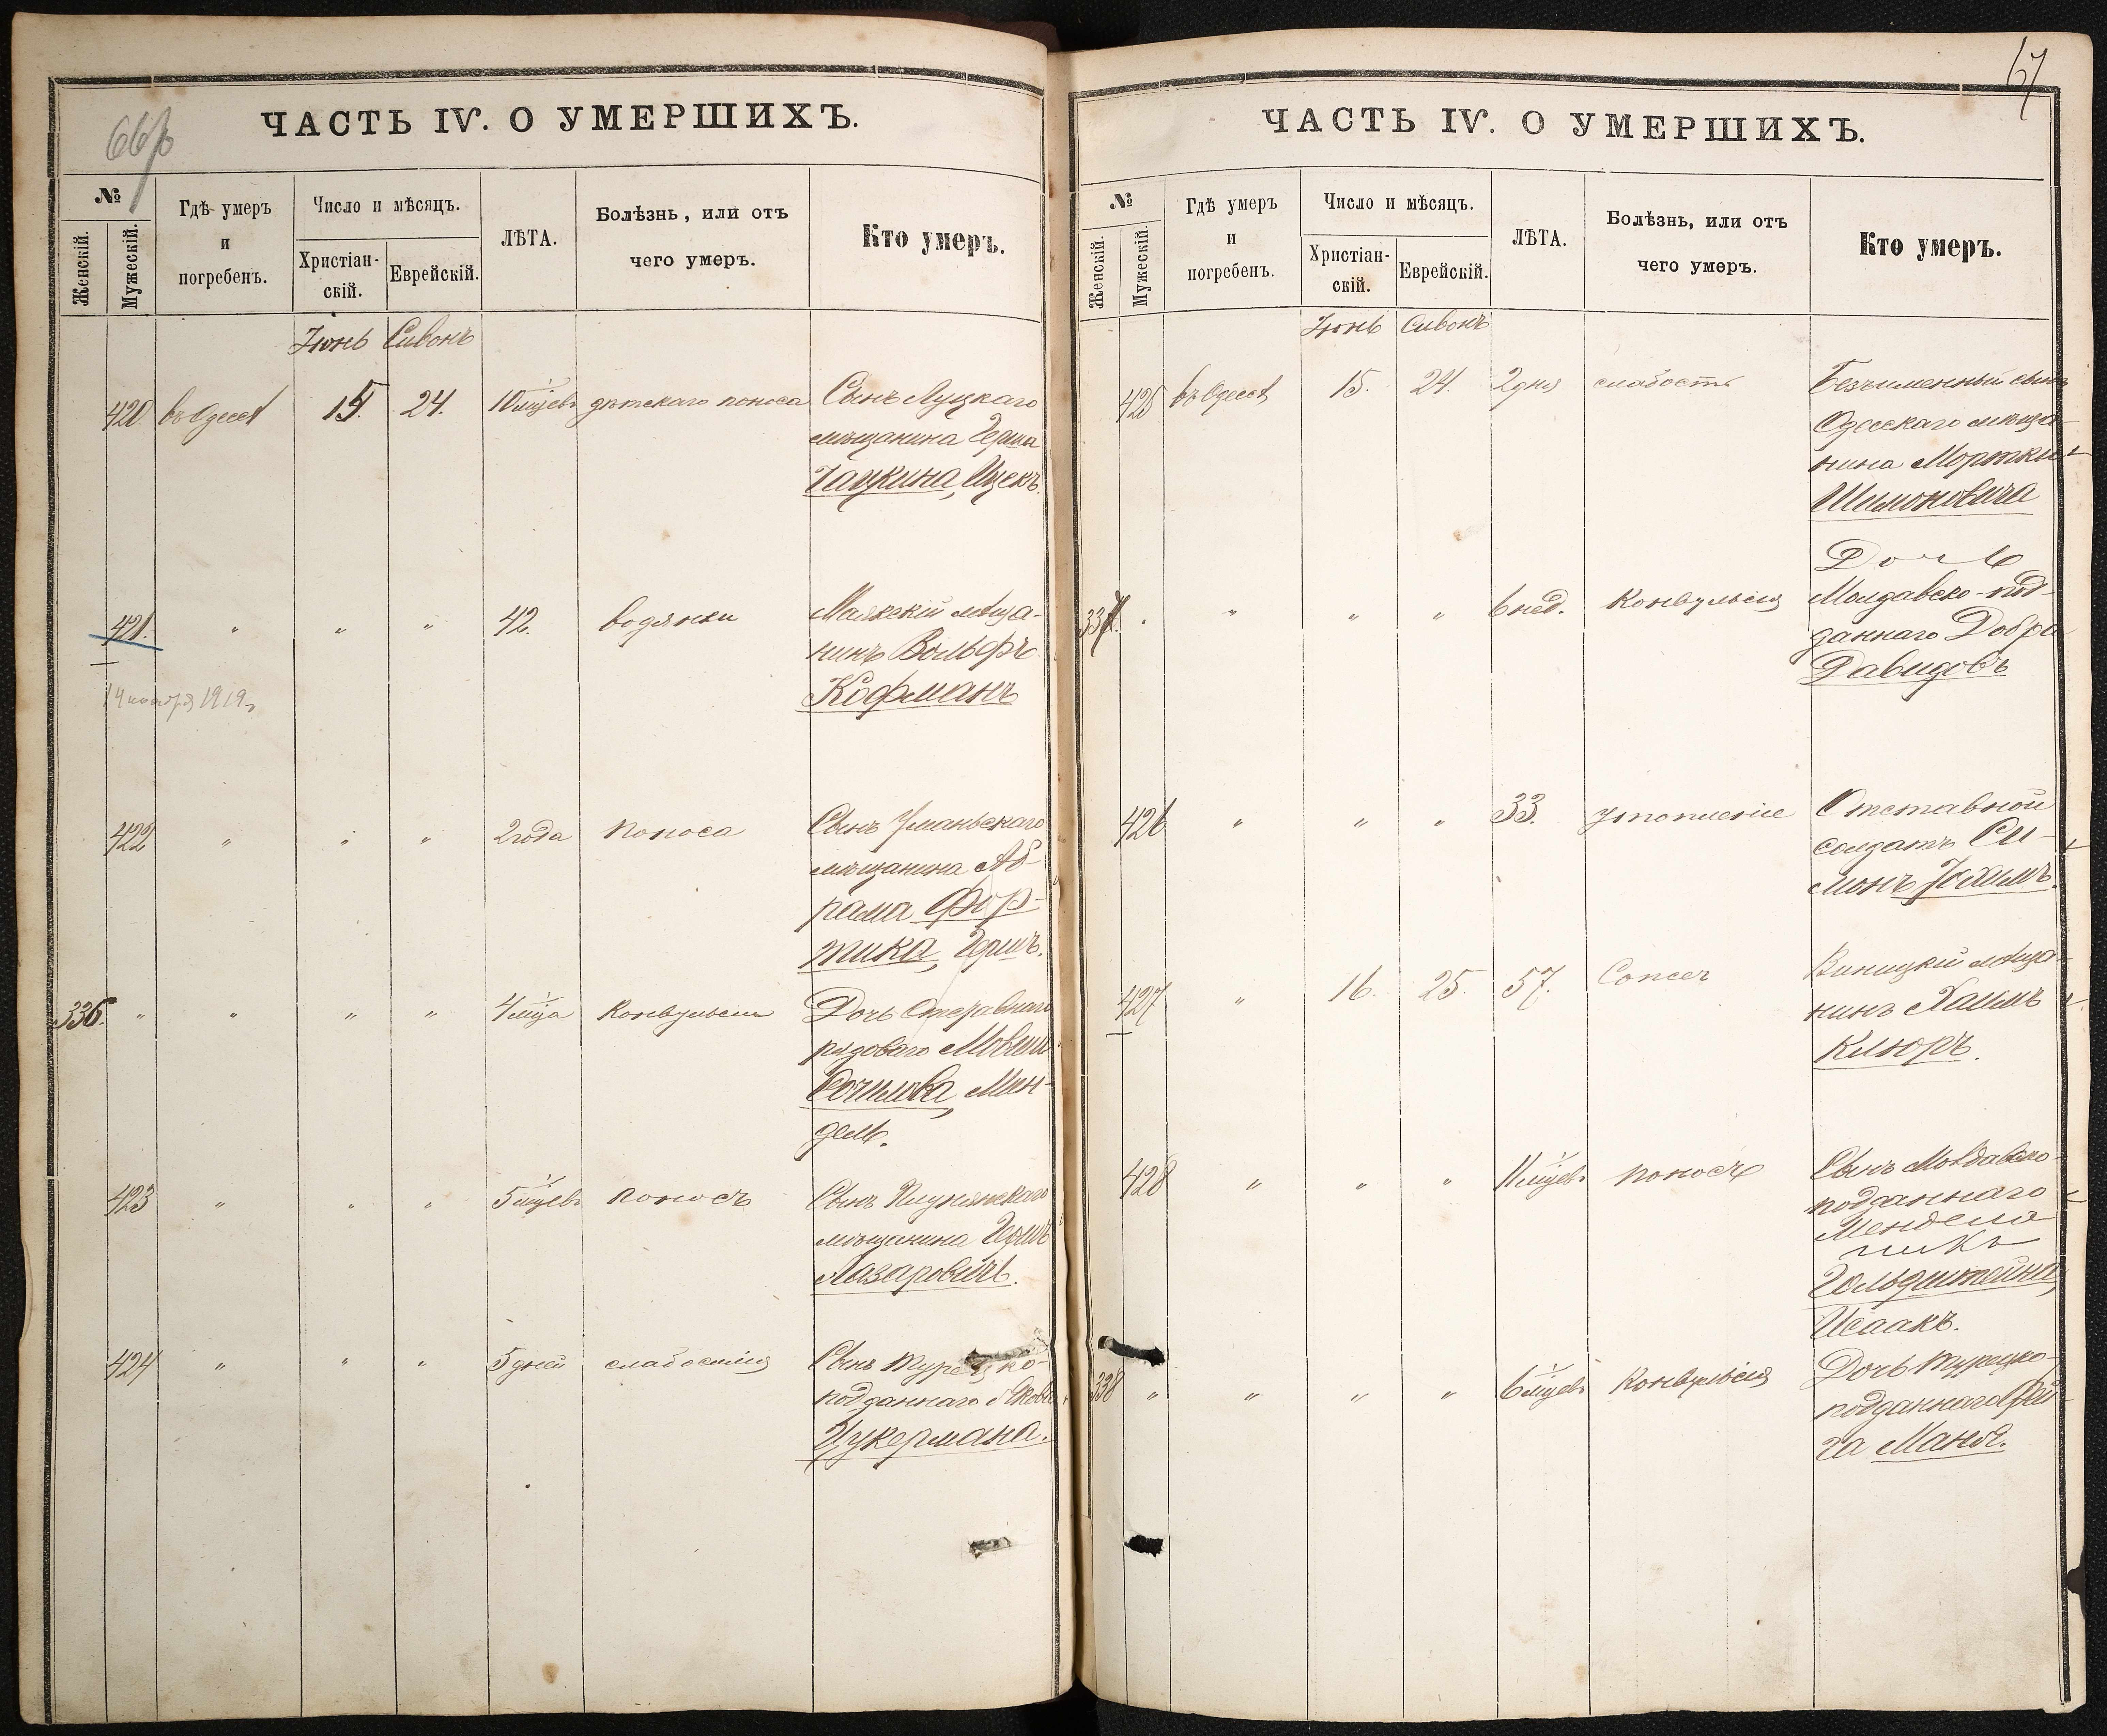 66
ЧАСТЬ IV. О УМЕРШИХЪ.
№
Женскій.
Мужескій.
Гдѣ умеръ
и
погребенъ.
Число и мѣсяцъ.
Христіан-
скій.
Еврейскій.
ЛѢТА.
Болѣзнь, или отъ
чего умеръ.
Кто умеръ.
Іюнь Сивонъ
420. въ Одессѣ 15. 24. 10 мцевъ дѣтскаго поноса Сынъ Луцкаго
мѣщанина Герша
Гаузкина, Ицекъ.
421. " " " 42. водянки Маякскій мѣща-
нинъ Вольфъ
Кофманъ
14 ноября 1919 г.
422 " " " 2 года поноса Сынъ Уманьскаго
мѣщанина Аб-
рама Фор-
тика, Гершъ.
336. " " " " 4 мца Конвульсіи Дочь Отставнаго
рядоваго
Мин-
дель.
423 " " " 5 мцевъ поносъ Сынъ
мѣщанина Гершъ
Лазаровичъ.
424 " " " 5 дней слабостію Сынъ Турецко-
подданнаго Якова
Цукермана.
67
ЧАСТЬ IV. О УМЕРШИХЪ.
№
Женскій.
Мужескій.
Гдѣ умеръ
и
погребенъ.
Число и мѣсяцъ.
Христіан-
скій.
Еврейскій.
ЛѢТА.
Болѣзнь, или отъ
чего умеръ.
Кто умеръ.
Іюнь Сивонъ
425 въ Одессѣ 15. 24. 2 дня слабость Безъименный сынъ
Одесскаго мѣща-
нина Мортки
Шимоновича
Дочь
337. " " " " 6 нед. Конвульсія Молдавско-под-
даннаго Добра
Давидовъ
426 " " " 33. утопленіе Отставной
солдатъ Си-
монъ Іохимъ.
427 " 16. 25. 57. Виницкій мѣща-
нинъ Хаимъ
Клюръ.
428 " " " 11 мцевъ поносъ Сынъ Молдавско-
подданнаго
Менделя
Гольдштейна,
Исаакъ.
338 " " " " 6 мцевъ Конвульсія Дочь турецко-
подданнаго Фай-
га Маноя.